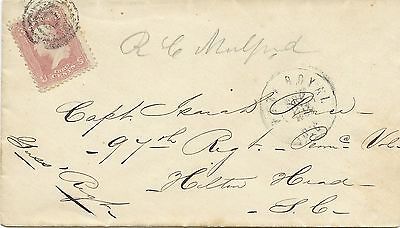 R C Mulford
ROYAL
Capt. Isaiah Price
97th Regt. Penna Vols
Hilton Head
S.C.